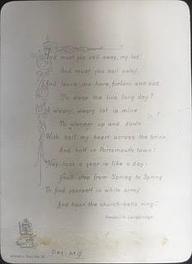 And must you sail away, my lad!
And must you sail away!
And leave me here, forlorn and sad
To weep the live long day?
A weary, weary lot is mine
To wander up and down
With half my heart across the brine
And half in Portsmouth town!
May such a year is like a day:
from Spring to Spring
To find yourself in white array
And hear the church-bells ring.
Frederick Langbridge